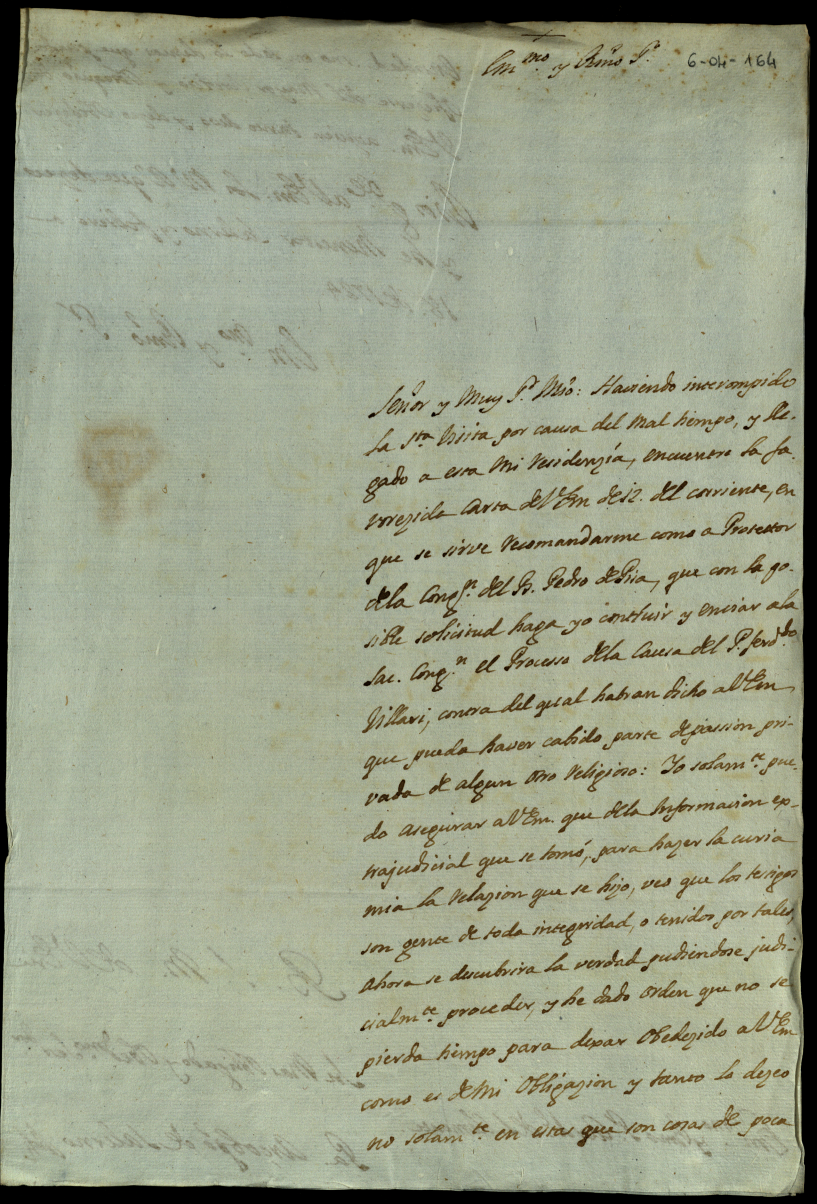 Em.mo y Rmo S.r
6-04-164
Señor y Muy S.r Mio: Haviendo interrompido
la S.ta Visita por causa del mal tiempo, y lle-
gado a esta mi residenzia, encuentro la fa-
vorezida carta de VEm de 12. del corriente, en
que se sirve recomandarme como a Protettor
dela Cong.n del B. Pedro de Pisa, que con la po-
sible solicitud haga yo concluir y enviar ala
Sac. Cong.n el Processo dela Causa del P. Ferd.do
Villari, contra del qual habran dicho a VEm
que pueda haver cabido parte de passion pri-
vada de algun otro religioso: Yo solam.te pue-
do asegurar a VEm. que dela Informacion ex-
trajudicial que se tomó, para hazer la curia
mia la relazion que se hizo, veo que los testigos
son gente de toda integridad, o tenidos por tales,
ahora se descubrira la verdad pudiendose judi-
cialm.te proceder, y he dado orden que no se
pierda tiempo para dexar obedezido a VEm
como es de mi obligazion y tanto lo dezeo
no solam.te en estas que son cosas de poca